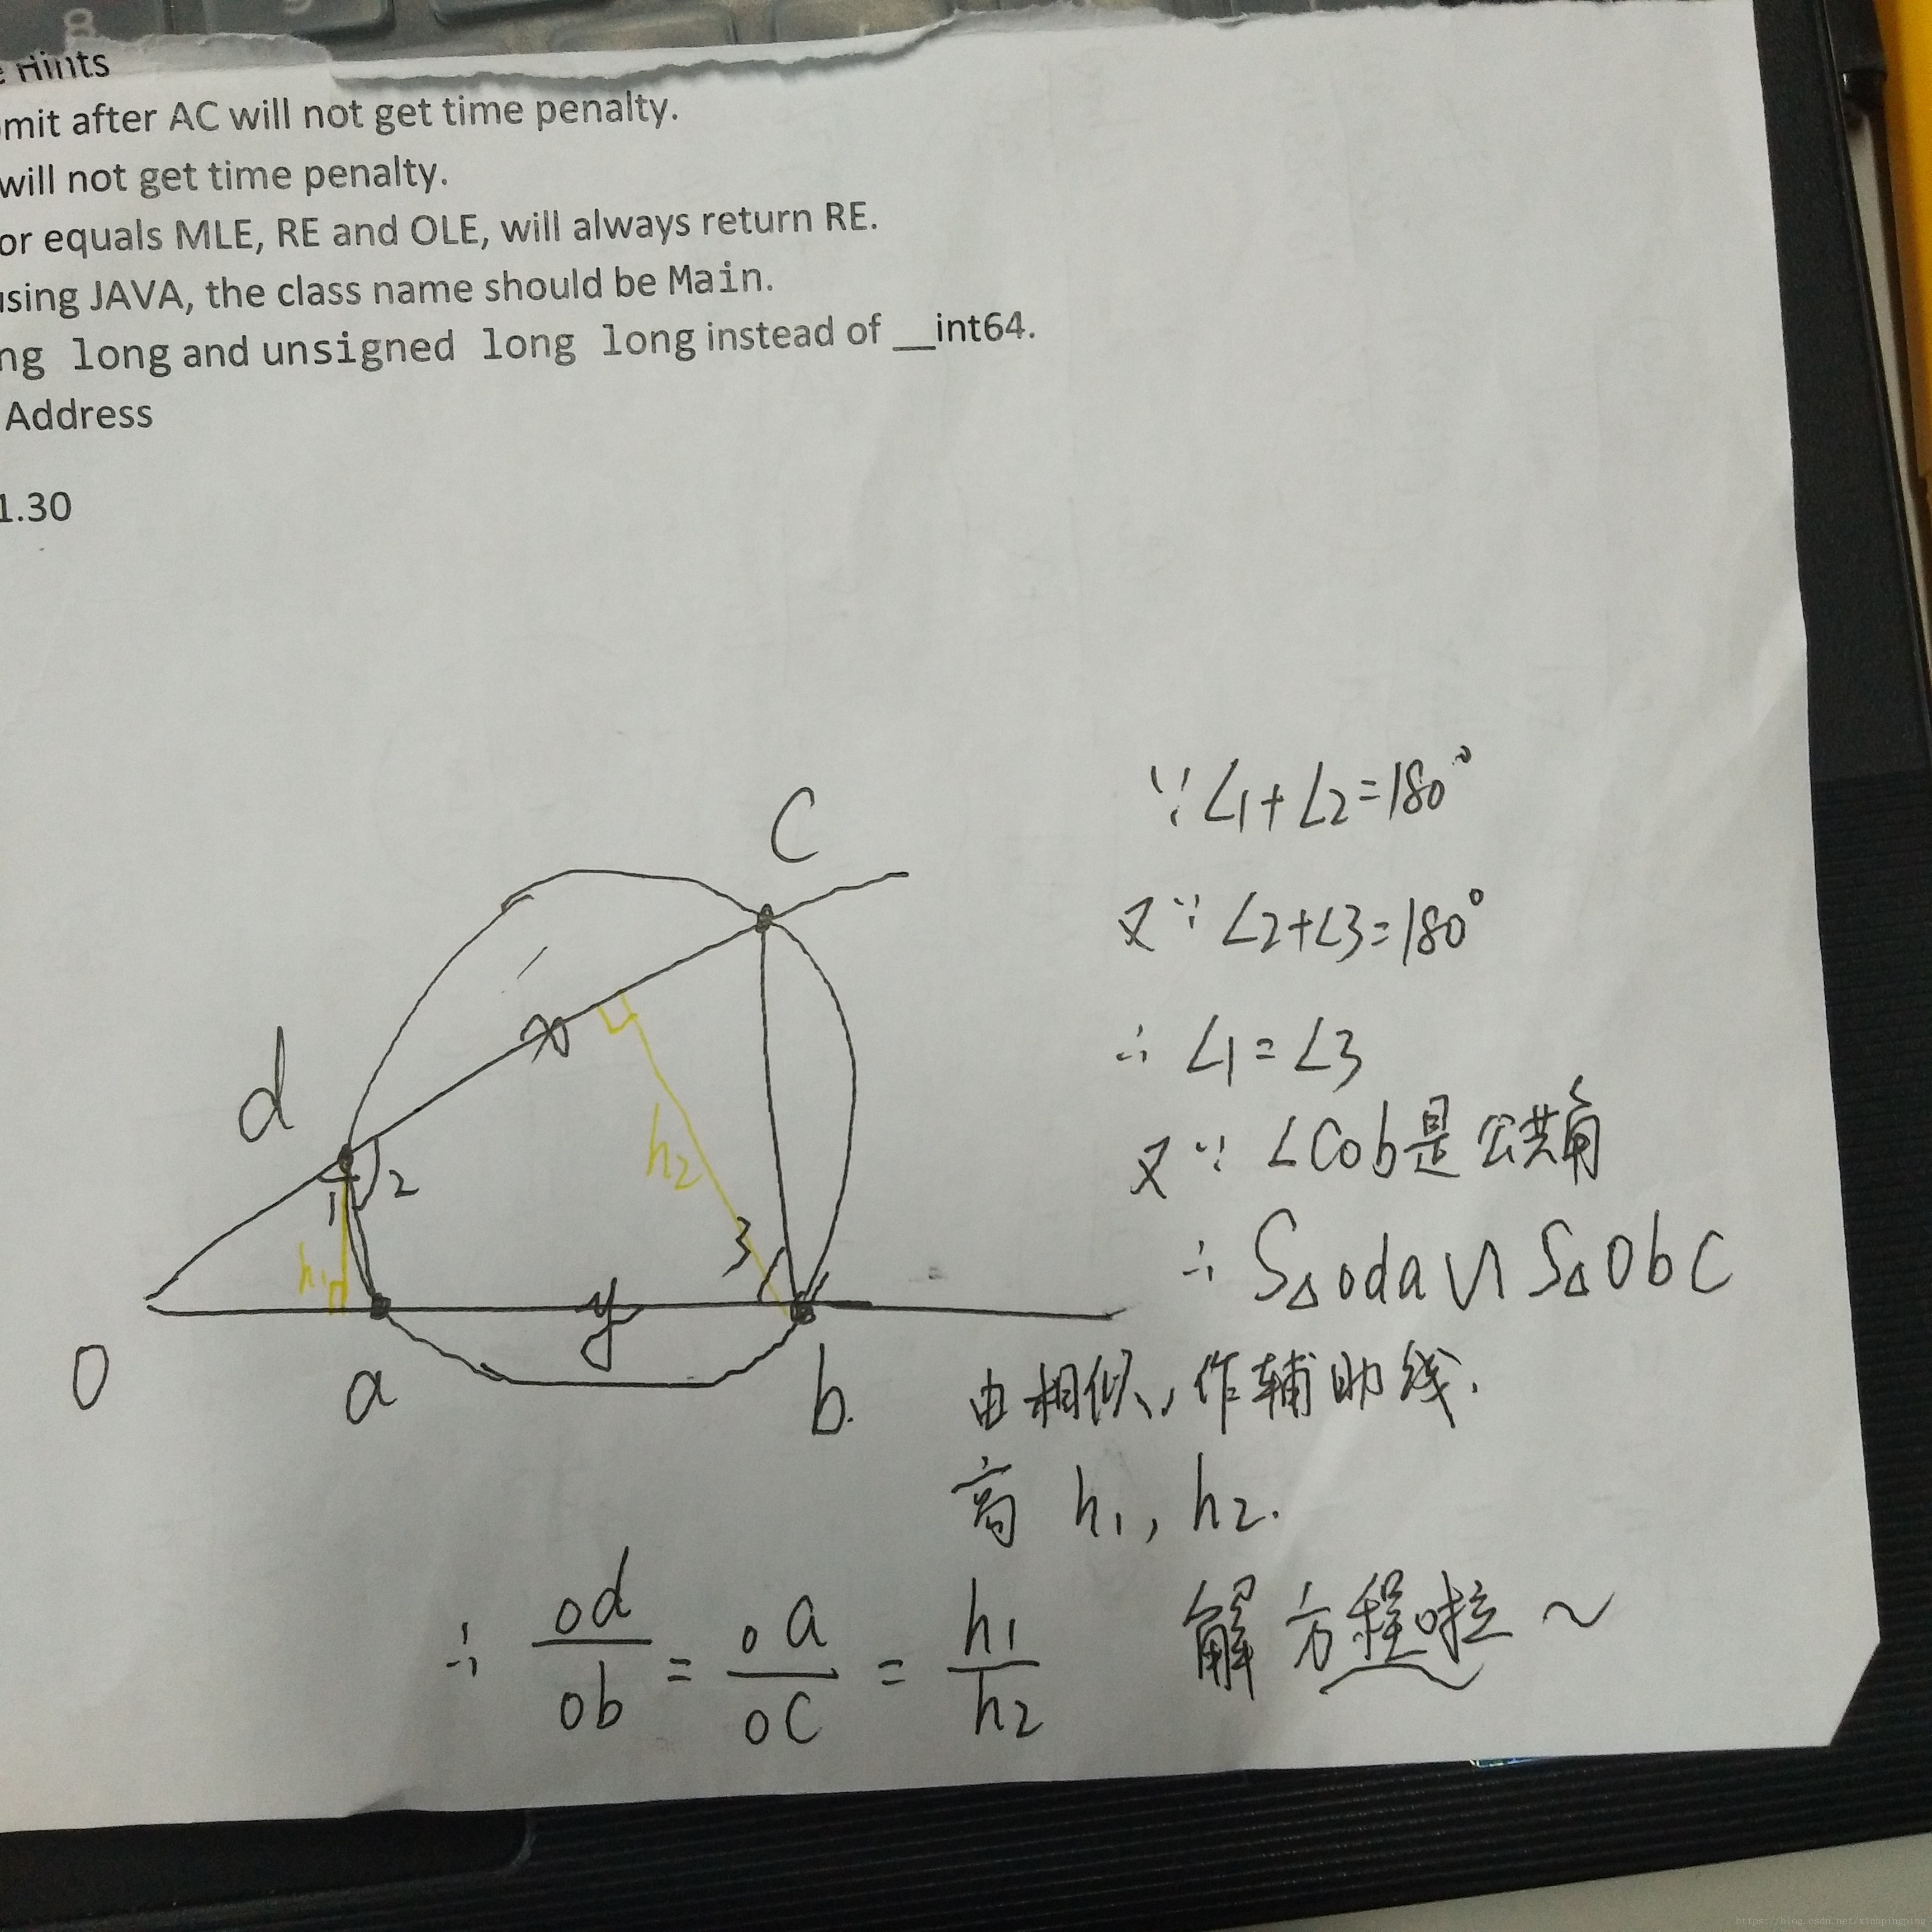 Hints
mit after AC will not get time penalty.
will not get time penalty.
or equals MLE, RE and OLE, will always return RE.
using JAVA, the class name should be Main.
ng long and unsigned long long instead of __int64.
Address
1.30
∵ ∠1+∠2=180°
又∵ ∠2+∠3=180°
∴ ∠1=∠3
又∵ ∠Cob是公共角
∴ S△oda ∽ S△obC
由相似,作辅助线.
高 h1, h2.
∴ od/ob = oa/oC = h1/h2
解方程啦~
C
x
d
h2
1
2
3
h1
y
O
a
b.